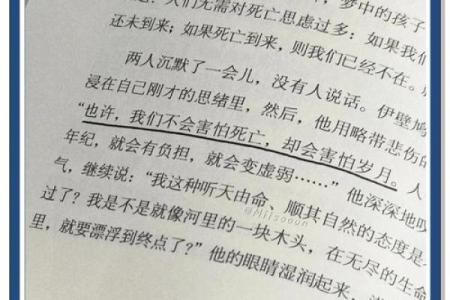 道：人们无需对死亡思虑过多：如果我们
还未到来；如果死亡到来，则我们已经不在。
两人沉默了一会儿，没有人说话。伊壁鸠
浸在自己刚才的思绪里，然后，他用略带悲伤的
“也许，我们不会害怕死亡，却会害怕岁月。人
年纪，就会有负担，就会变虚弱……”他深深地叹
气，继续说：“我这种听天由命、顺其自然的态度是
过了？我是不是就像河里的一块木头，在无尽的生命
里，就要漂浮到终点了？”他的眼睛湿润起来，